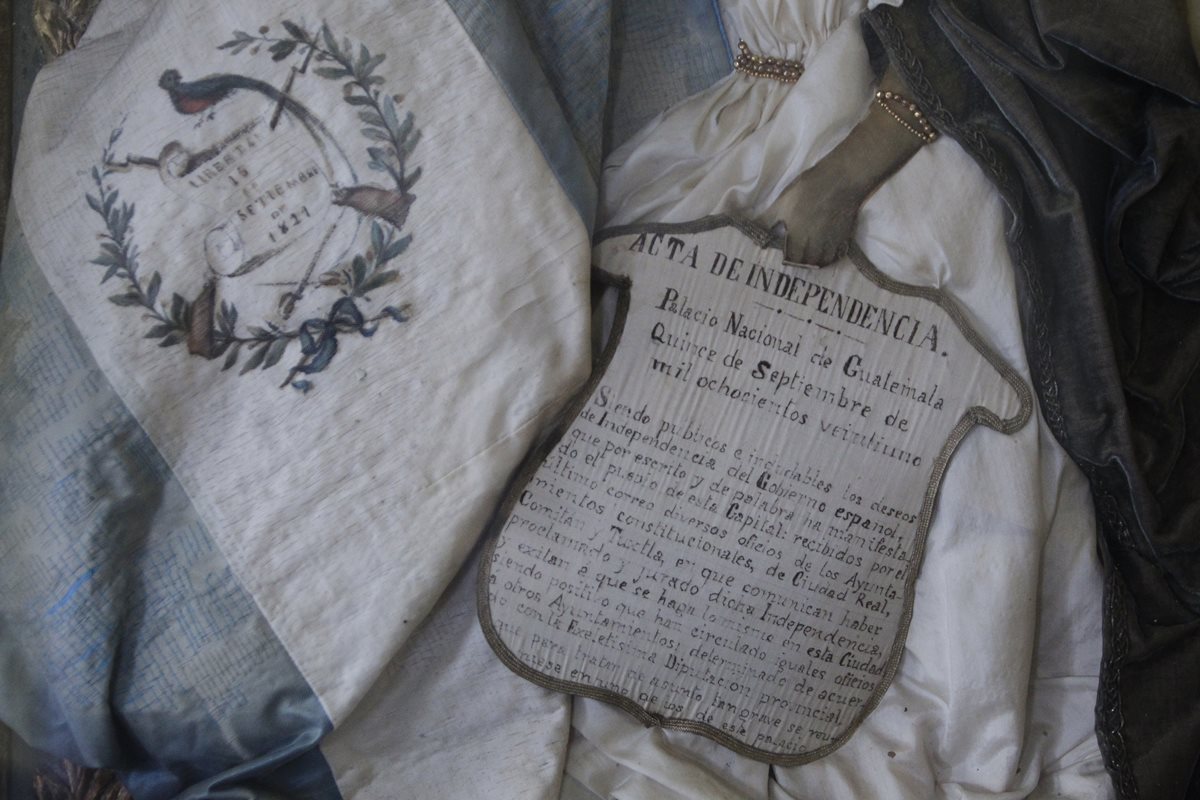 LIBERTAD
15
DE
SETIEMBRE
DE
1821
ACTA DE INDEPENDENCIA.
Palacio Nacional de Guatemala
Quince de Septiembre de
mil ochocientos veintiuno
Siendo publicos e indudables los deseos
de Independencia del Gobierno español,
que por escrito y de palabra ha manifesta
do el pueblo de esta Capital: recibidos por el
último correo diversos oficios de los Ayunta-
mientos constitucionales, de Ciudad Real,
Comitan y Tuxtla, en que comunican haber
proclamado y jurado dicha Independencia,
y exitan á que se haga lo mismo en esta Ciudad
siendo positivo que han circulado iguales oficios
a otros Ayuntamientos; determinado de acuer-
do con la Exeletisima Diputacion provincial
que para tratar de asunto tan grave se reu
niese en uno de los de este palacio